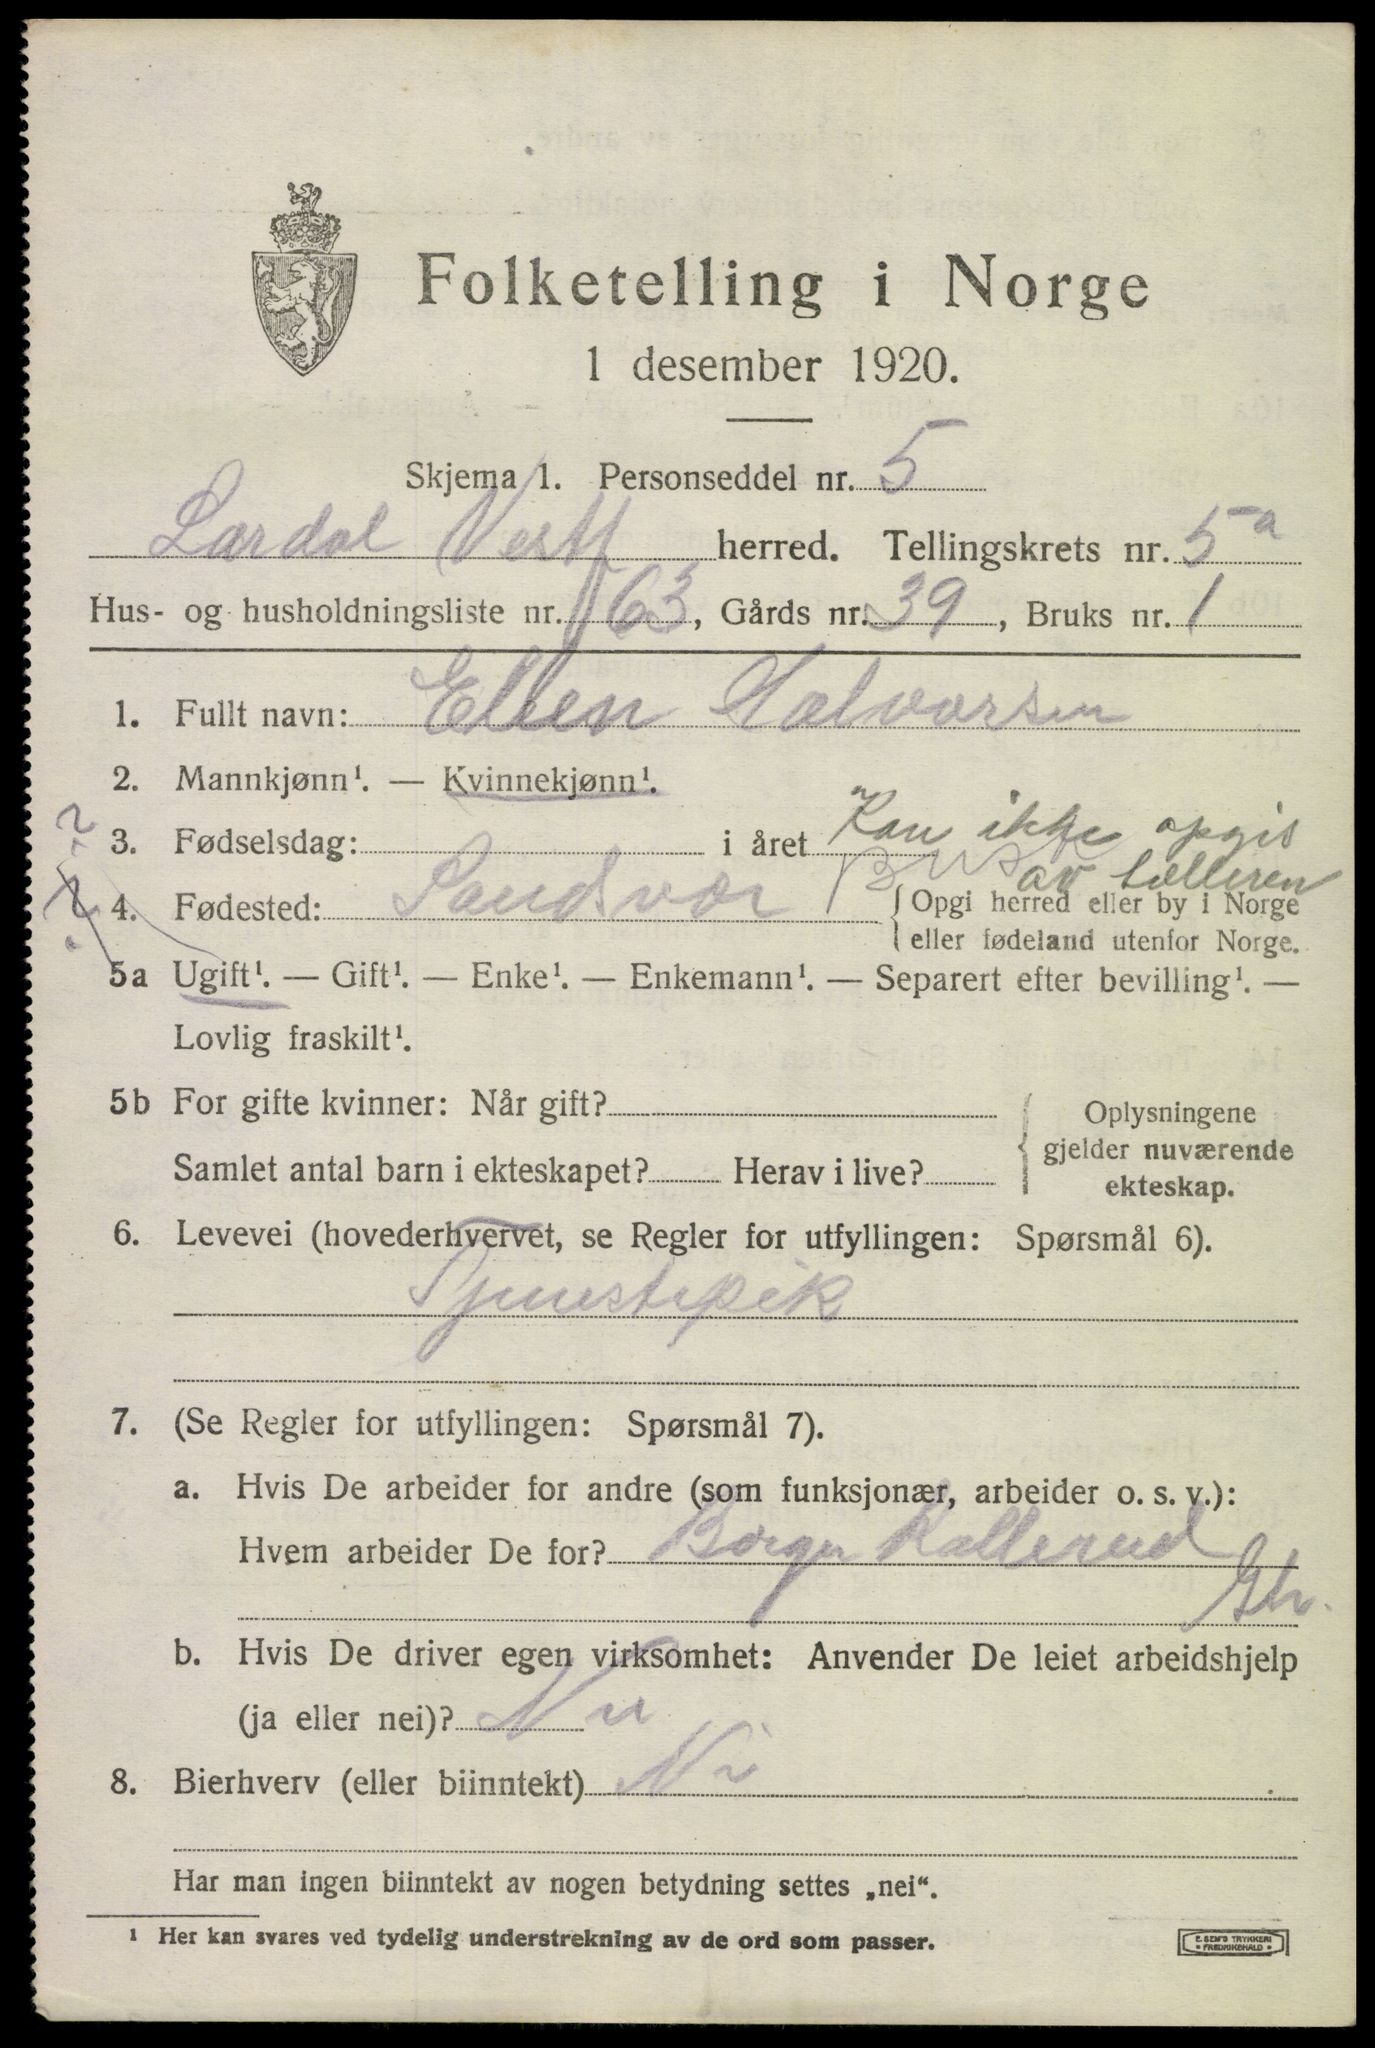 Folketelling i Norge
1 desember 1920.
Skjema 1. Personseddel nr. 5
Lardal Vestf herred. Tellingskrets nr. 5a
Hus- og husholdningsliste nr. 63, Gårds nr. 39, Bruks nr. 1
1. Fullt navn: Ellen Halvorsen
2. Mannkjønn¹. — Kvinnekjønn¹.
3. Fødselsdag: i året Kan ikke opgis
av tælleren
4. Fødested: Sandsvær { Opgi herred eller by i Norge
eller fødeland utenfor Norge.
5a Ugift¹. — Gift¹. — Enke¹. — Enkemann¹. — Separert efter bevilling¹. —
Lovlig fraskilt¹.
5b For gifte kvinner: Når gift? { Oplysningene
gjelder nuværende
Samlet antal barn i ekteskapet? Herav i live? ekteskap.
6. Levevei (hovederhvervet, se Regler for utfyllingen: Spørsmål 6).
Tjenestepik
7. (Se Regler for utfyllingen: Spørsmål 7).
a. Hvis De arbeider for andre (som funksjonær, arbeider o. s. v.):
Hvem arbeider De for? Borger Kallerud
b. Hvis De driver egen virksomhet: Anvender De leiet arbeidshjelp
(ja eller nei)? Nei
8. Bierhverv (eller biinntekt) Nei
Har man ingen biinntekt av nogen betydning settes „nei“.
¹ Her kan svares ved tydelig understrekning av de ord som passer.
E. SEM'S TRYKKERI
FREDRIKSHALD